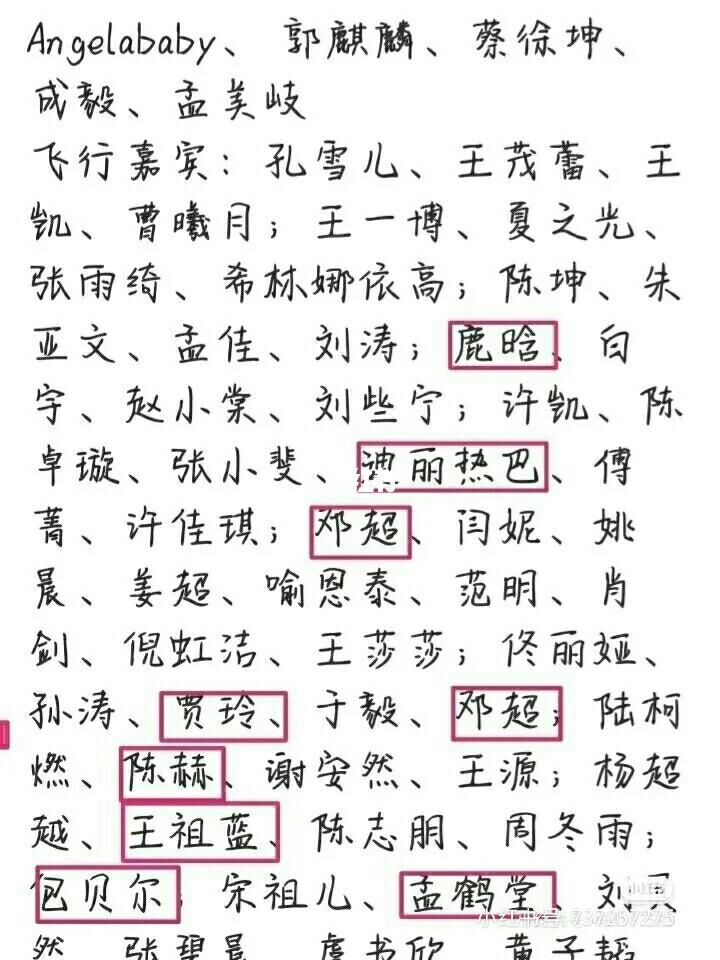 Angelababy、郭麒麟、蔡徐坤、
成毅、孟美岐
飞行嘉宾：孔雪儿、王茂蕾、王
凯、曹曦月；王一博、夏之光、
张雨绮、希林娜依高；陈坤、朱
亚文、孟佳、刘涛；鹿晗、白
宇、赵小棠、刘些宁；许凯、陈
卓璇、张小斐、迪丽热巴、傅
菁、许佳琪；邓超、闫妮、姚
晨、姜超、喻恩泰、范明、肖
剑、倪虹洁、王莎莎；佟丽娅、
孙涛、贾玲、于毅、邓超；陆柯
燃、陈赫、谢安然、王源；杨超
越、王祖蓝、陈志朋、周冬雨；
包贝尔；宋祖儿、孟鹤堂、刘
然、张碧晨、虞书欣、黄子韬
小红书
小红书号：737257275